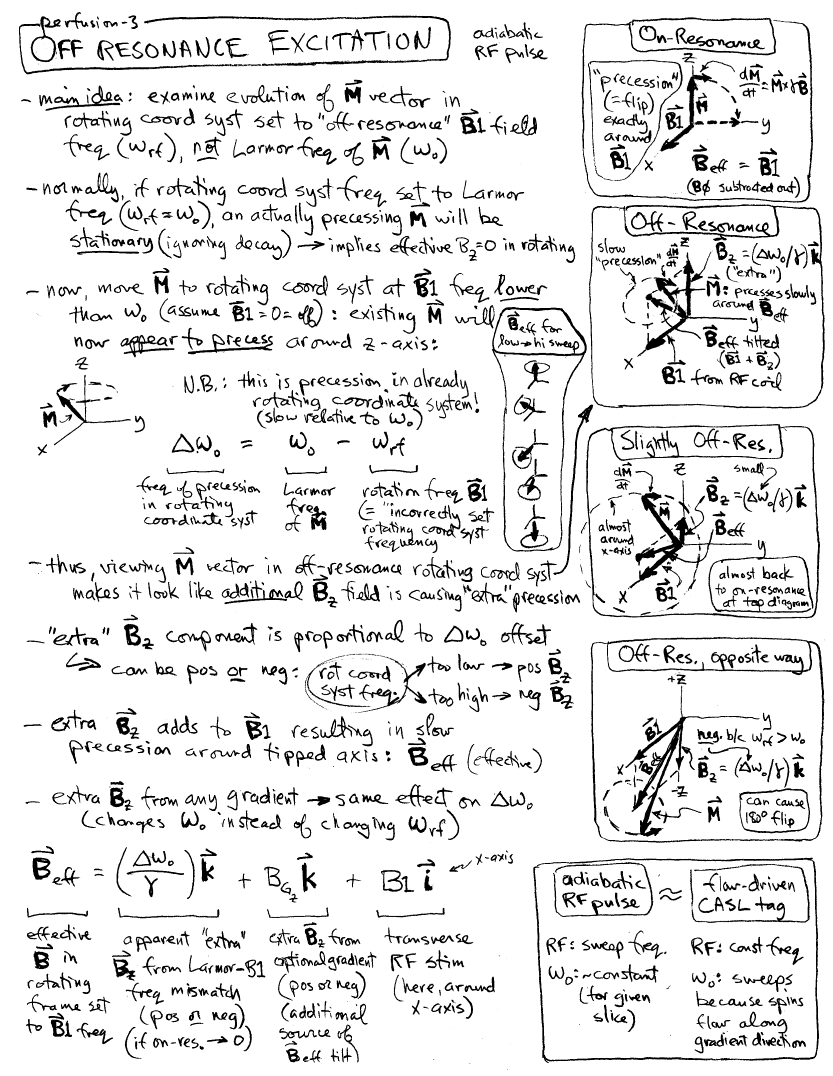 perfusion-3
OFF RESONANCE EXCITATION
adiabatic
RF pulse
- main idea: examine evolution of M⃗ vector in
rotating coord syst set to "off-resonance" B⃗1 field
freq (ωrf), not Larmor freq of M⃗ (ω₀)
- normally, if rotating coord syst freq set to Larmor
freq (ωrf = ω₀), an actually precessing M⃗ will be
stationary (ignoring decay) → implies effective Bz=0 in rotating
- now, move M⃗ to rotating coord syst at B⃗1 freq lower
than ω₀ (assume B⃗1=0=off): existing M⃗ will
now appear to precess around z-axis:
z
M⃗
y
x
N.B.: this is precession in already
rotating coordinate system!
(slow relative to ω₀)
Δω₀ = ω₀ - ωrf
freq of precession
in rotating
coordinate syst
Larmor
freq
of M⃗
rotation freq B⃗1
(= "incorrectly set
rotating coord syst
frequency
B⃗eff for
low→hi sweep
- thus, viewing M⃗ vector in off-resonance rotating coord syst
makes it look like additional B⃗z field is causing "extra" precession
- "extra" B⃗z component is proportional to Δω₀ offset
↪ can be pos or neg:
rot coord
syst freq:
too low → pos B⃗z
too high → neg B⃗z
- extra B⃗z adds to B⃗1 resulting in slow
precession around tipped axis: B⃗eff (effective)
- extra B⃗z from any gradient → same effect on Δω₀
(changes ω₀ instead of changing ωrf)
B⃗eff = (Δω₀/γ) k⃗ + BGz k⃗ + B1 i⃗
x-axis
effective
B⃗ in
rotating
frame set
to B⃗1 freq
apparent "extra"
B⃗z from Larmor-B1
freq mismatch
(pos or neg)
(if on-res. → 0)
extra B⃗z from
optional gradient
(pos or neg)
(additional
source of
B⃗eff tilt)
transverse
RF stim
(here, around
x-axis)
On-Resonance
"precession"
(=flip)
exactly
around
B⃗1
z
dM⃗/dt = M⃗×γB⃗
M⃗
B⃗1
y
x
B⃗eff = B⃗1
(BØ subtracted out)
Off-Resonance
slow
"precession"
dM⃗/dt
z
B⃗z = (Δω₀/γ) k⃗
("extra")
M⃗: precesses slowly
around B⃗eff
y
B⃗eff tilted
(B⃗1 + B⃗z)
x
B⃗1 from RF coil
Slightly Off-Res.
dM⃗/dt
z
small
M⃗
B⃗z = (Δω₀/γ) k⃗
B⃗eff
almost
around
x-axis
y
x
B⃗1
almost back
to on-resonance
at top diagram
Off-Res., opposite way
+z
B⃗1
y
neg. b/c ωrf > ω₀
x
B⃗eff
B⃗z = (Δω₀/γ) k⃗
-z
M⃗
can cause
180° flip
adiabatic
RF pulse
≈
flow-driven
CASL tag
RF: sweep freq.
ω₀: ~constant
(for given
slice)
RF: const freq
ω₀: sweeps
because spins
flow along
gradient direction